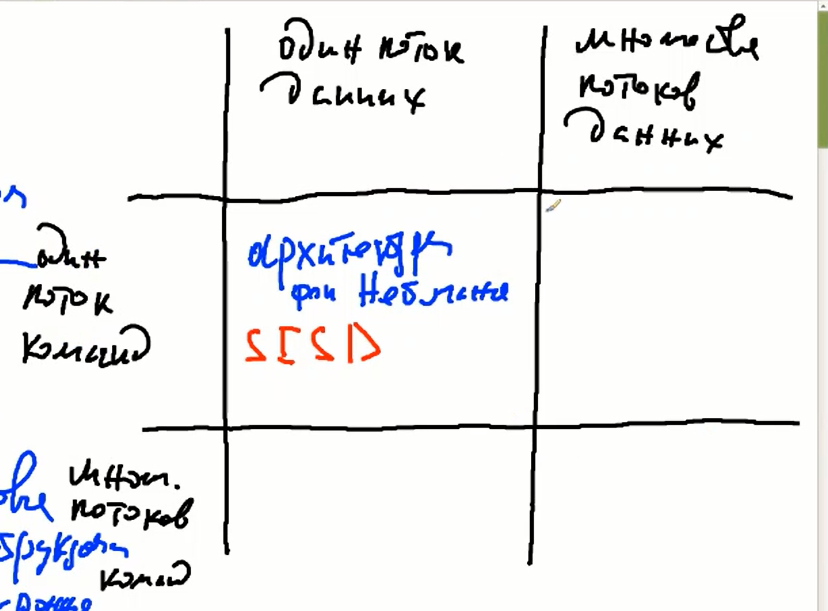 один поток
данных
множество
потоков
данных
один
поток
команд
архитектура
фон Неймана
SISD
множ.
потоков
команд